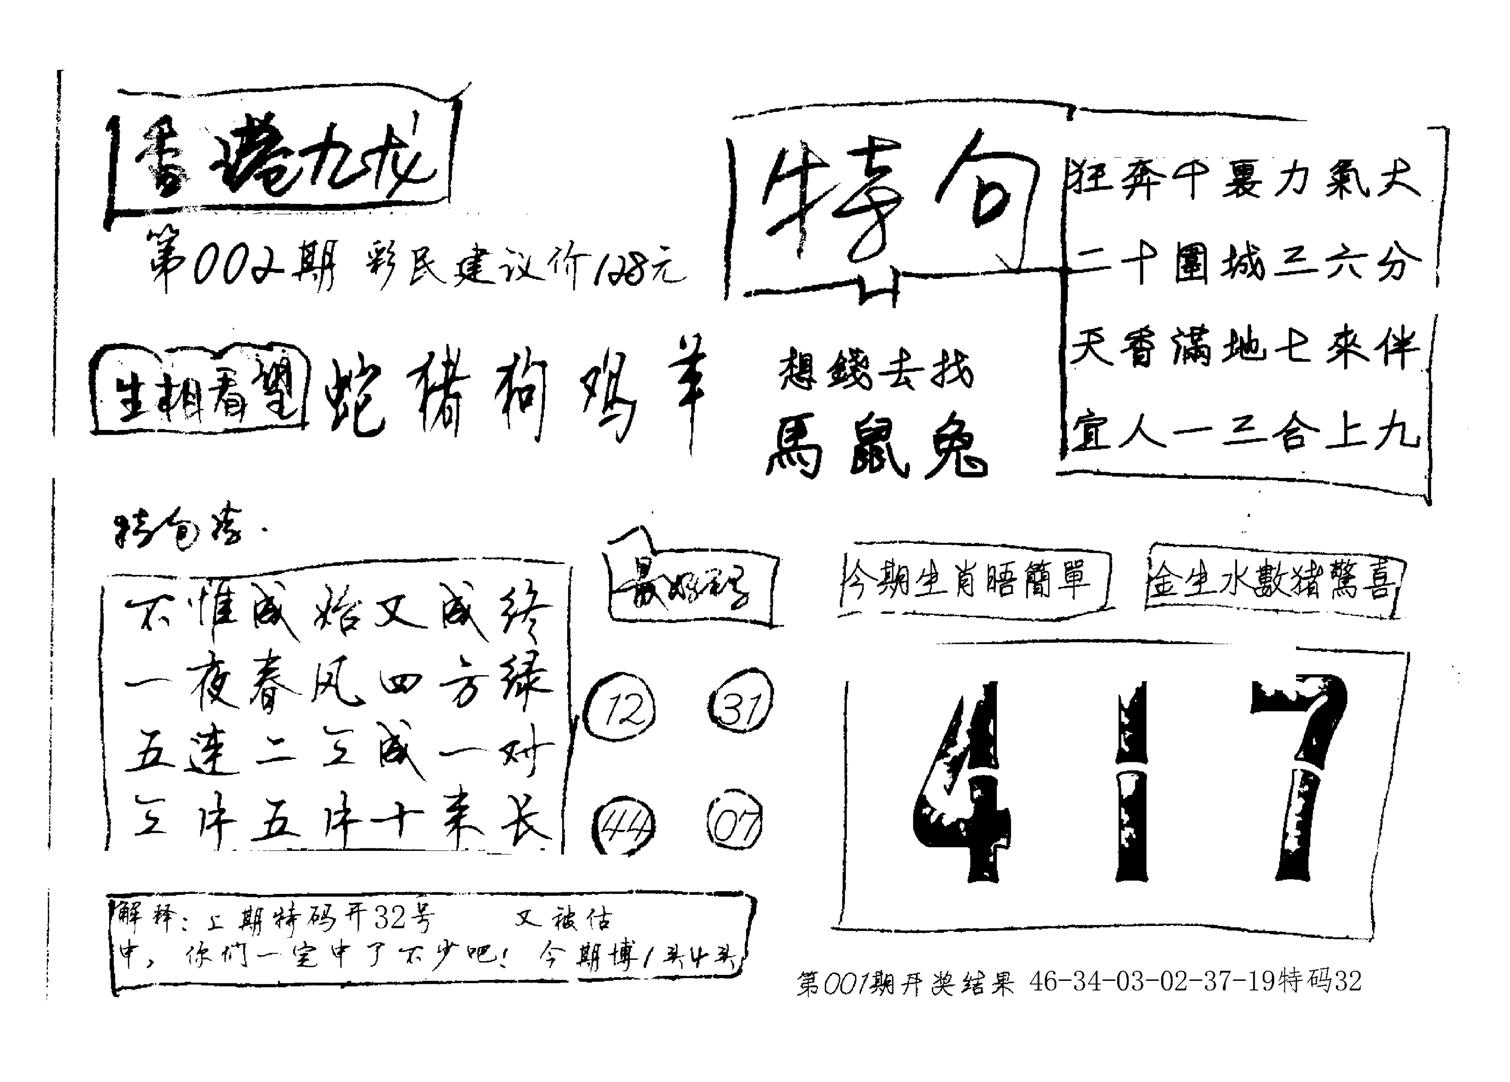 香港九龙
第002期 彩民建议价128元
特句
狂奔千里力氣大
二十圍城三六分
天香滿地七來伴
宜人一三合上九
生相看望 蛇猪狗鸡羊
想錢去找
馬鼠兔
特句诗.
不惟成始又成终
一夜春风四方绿
五连二三成一对
三中五中十来长
最好码
12 31
44 07
今期生肖晤簡單
金生水數猪驚喜
417
解释:上期特码开32号 又被估
中,你们一定中了不少吧!今期博1头4头
第001期开奖结果 46-34-03-02-37-19特码32